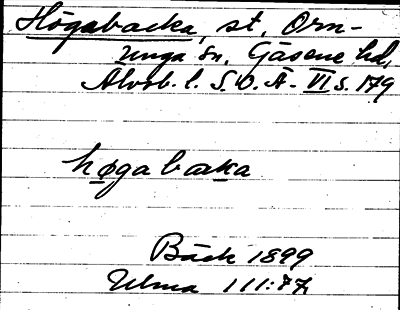 Högabacka, st. Orn-
unga sn, Gäsene hd,
Älvsb. l. S.O.Ä - VI s. 179
høga backa
Bäck 1899
Ulma 111:77